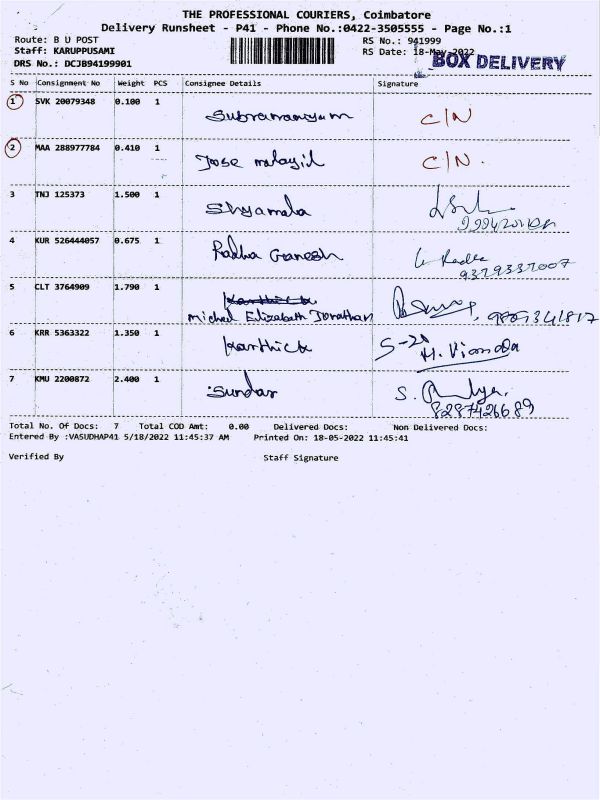 THE PROFESSIONAL COURIERS, Coimbatore
Delivery Runsheet - P41 - Phone No.:0422-3505555 - Page No.:1
Route: B U POST RS No.: 941999
Staff: KARUPPUSAMI RS Date: 18-May-2022
DRS No.: DCJB94199901 BOX DELIVERY
S No Consignment No Weight PCS Consignee Details Signature
1 SVK 20079348 0.100 1 Subramaniyam C/N
2 MAA 288977784 0.410 1 Jose malayil C/N.
3 TNJ 125373 1.500 1 Shyamala
4 KUR 526444057 0.675 1 Radha Ganesh
9379337007
5 CLT 3764909 1.790 1 Karthick
Michael Elizabeth Jonathan
6 KRR 5363322 1.350 1 Karthick S-20
7 KMU 2200872 2.400 1 Sundar S.
8287426689
Total No. Of Docs: 7 Total COD Amt: 0.00 Delivered Docs: Non Delivered Docs:
Entered By :VASUDHAP41 5/18/2022 11:45:37 AM Printed On: 18-05-2022 11:45:41
Verified By Staff Signature